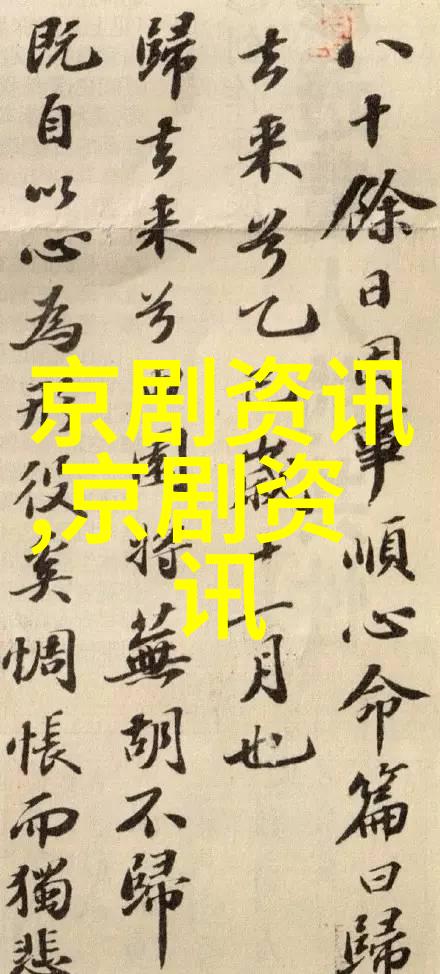 八十餘日因事順心命篇曰歸
去来兮乙巳歲十一月也
歸去来兮田園将蕪胡不歸
既自以心為形役奚惆悵而獨悲
京剧资讯
,京剧资
讯